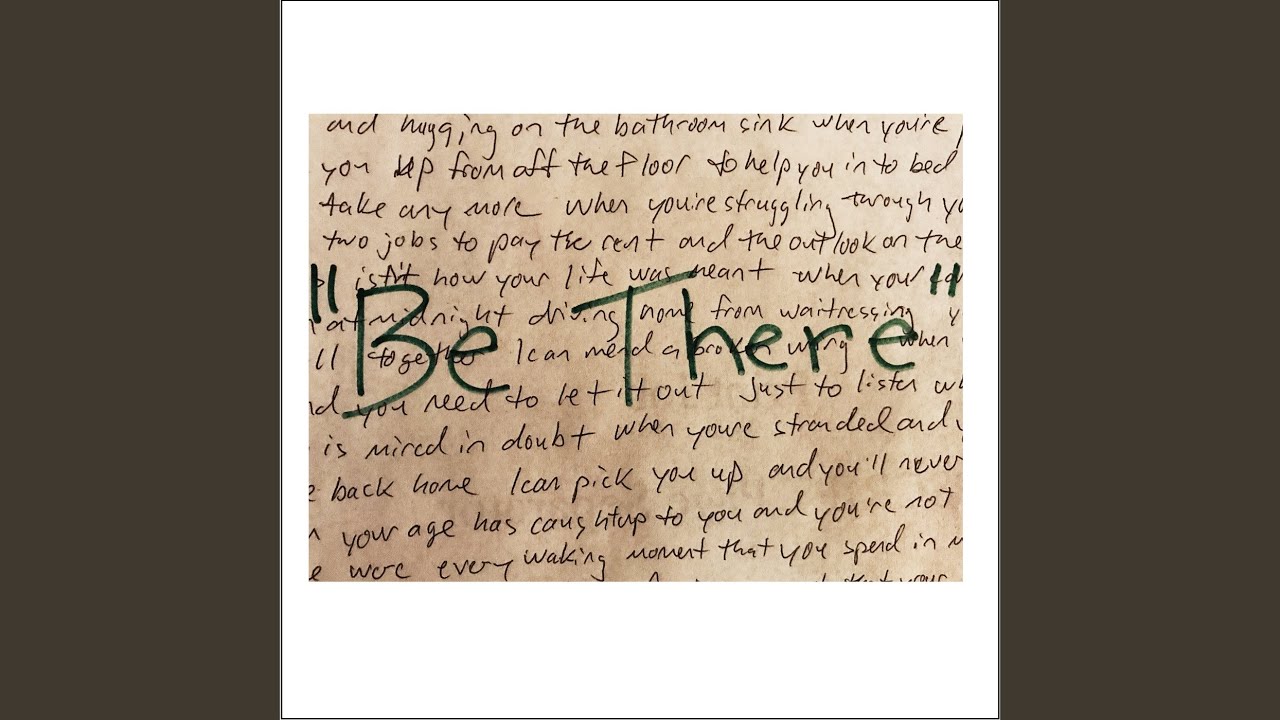 and hugging on the bathroom sink when you're
you up from off the floor to help you in to bed
take any more when you're struggling through
two jobs to pay the rent and the outlook on the
isn't how your life was meant when your
"Be There"
at midnight driving home from waitressing
ll together I can mend a broken wing when
nd you need to let it out just to listen
is mired in doubt when you're stranded and
back home I can pick you up and you'll never
your age has caught up to you and you're not
were every waking moment that you spend in
that your